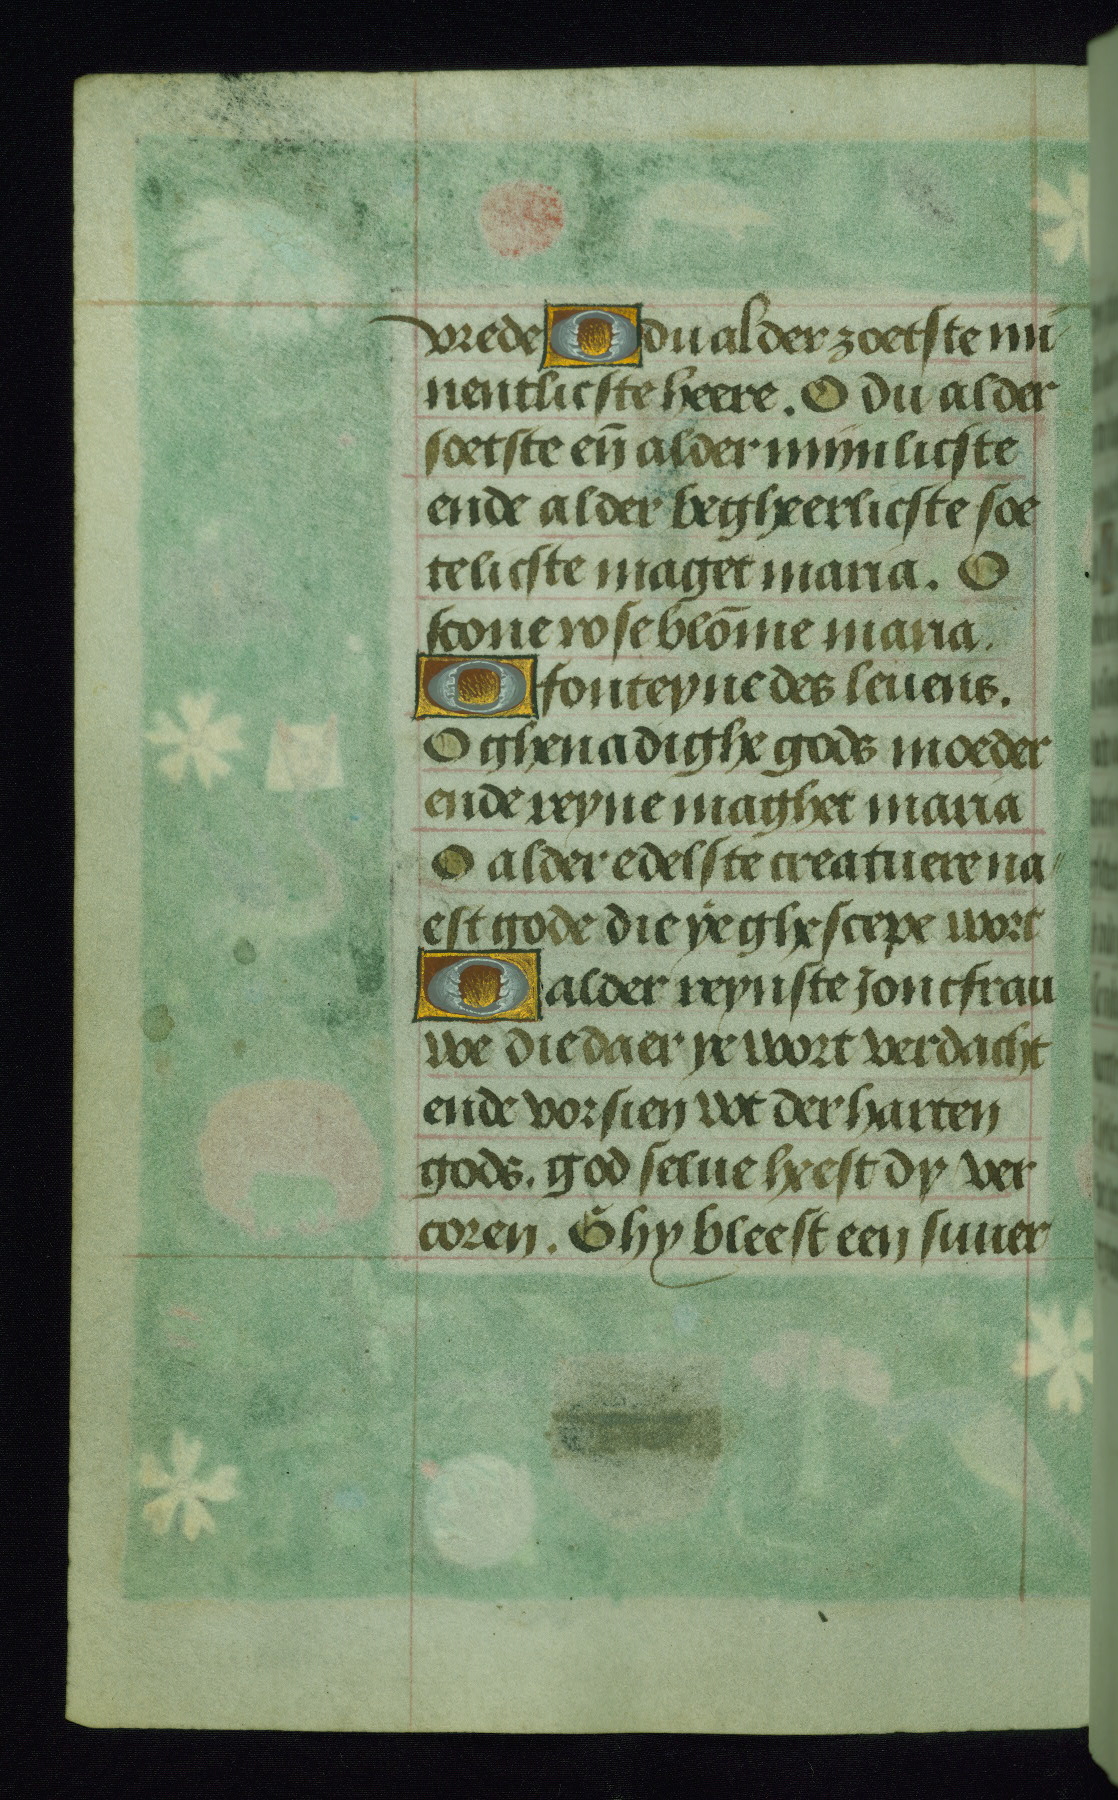 vrede O du alder zoetste mi
nentlicste heere. O du alder
soetste en̄ alder mijnlicste
ende alder begheerlicste soe
telicste maget maria. O
scone rose blōme maria.
O fonteyne des leuens.
O ghenadighe gods moeder
ende reyne maghet maria
O alder edelste creatuere na
est gode die ye ghescepe wort
O alder reynste joncfrau
we die daer ye wort verdacht
ende vorsien wt der harten
gods. god selue heest dy ver
coren. Ghy bleest een suuer